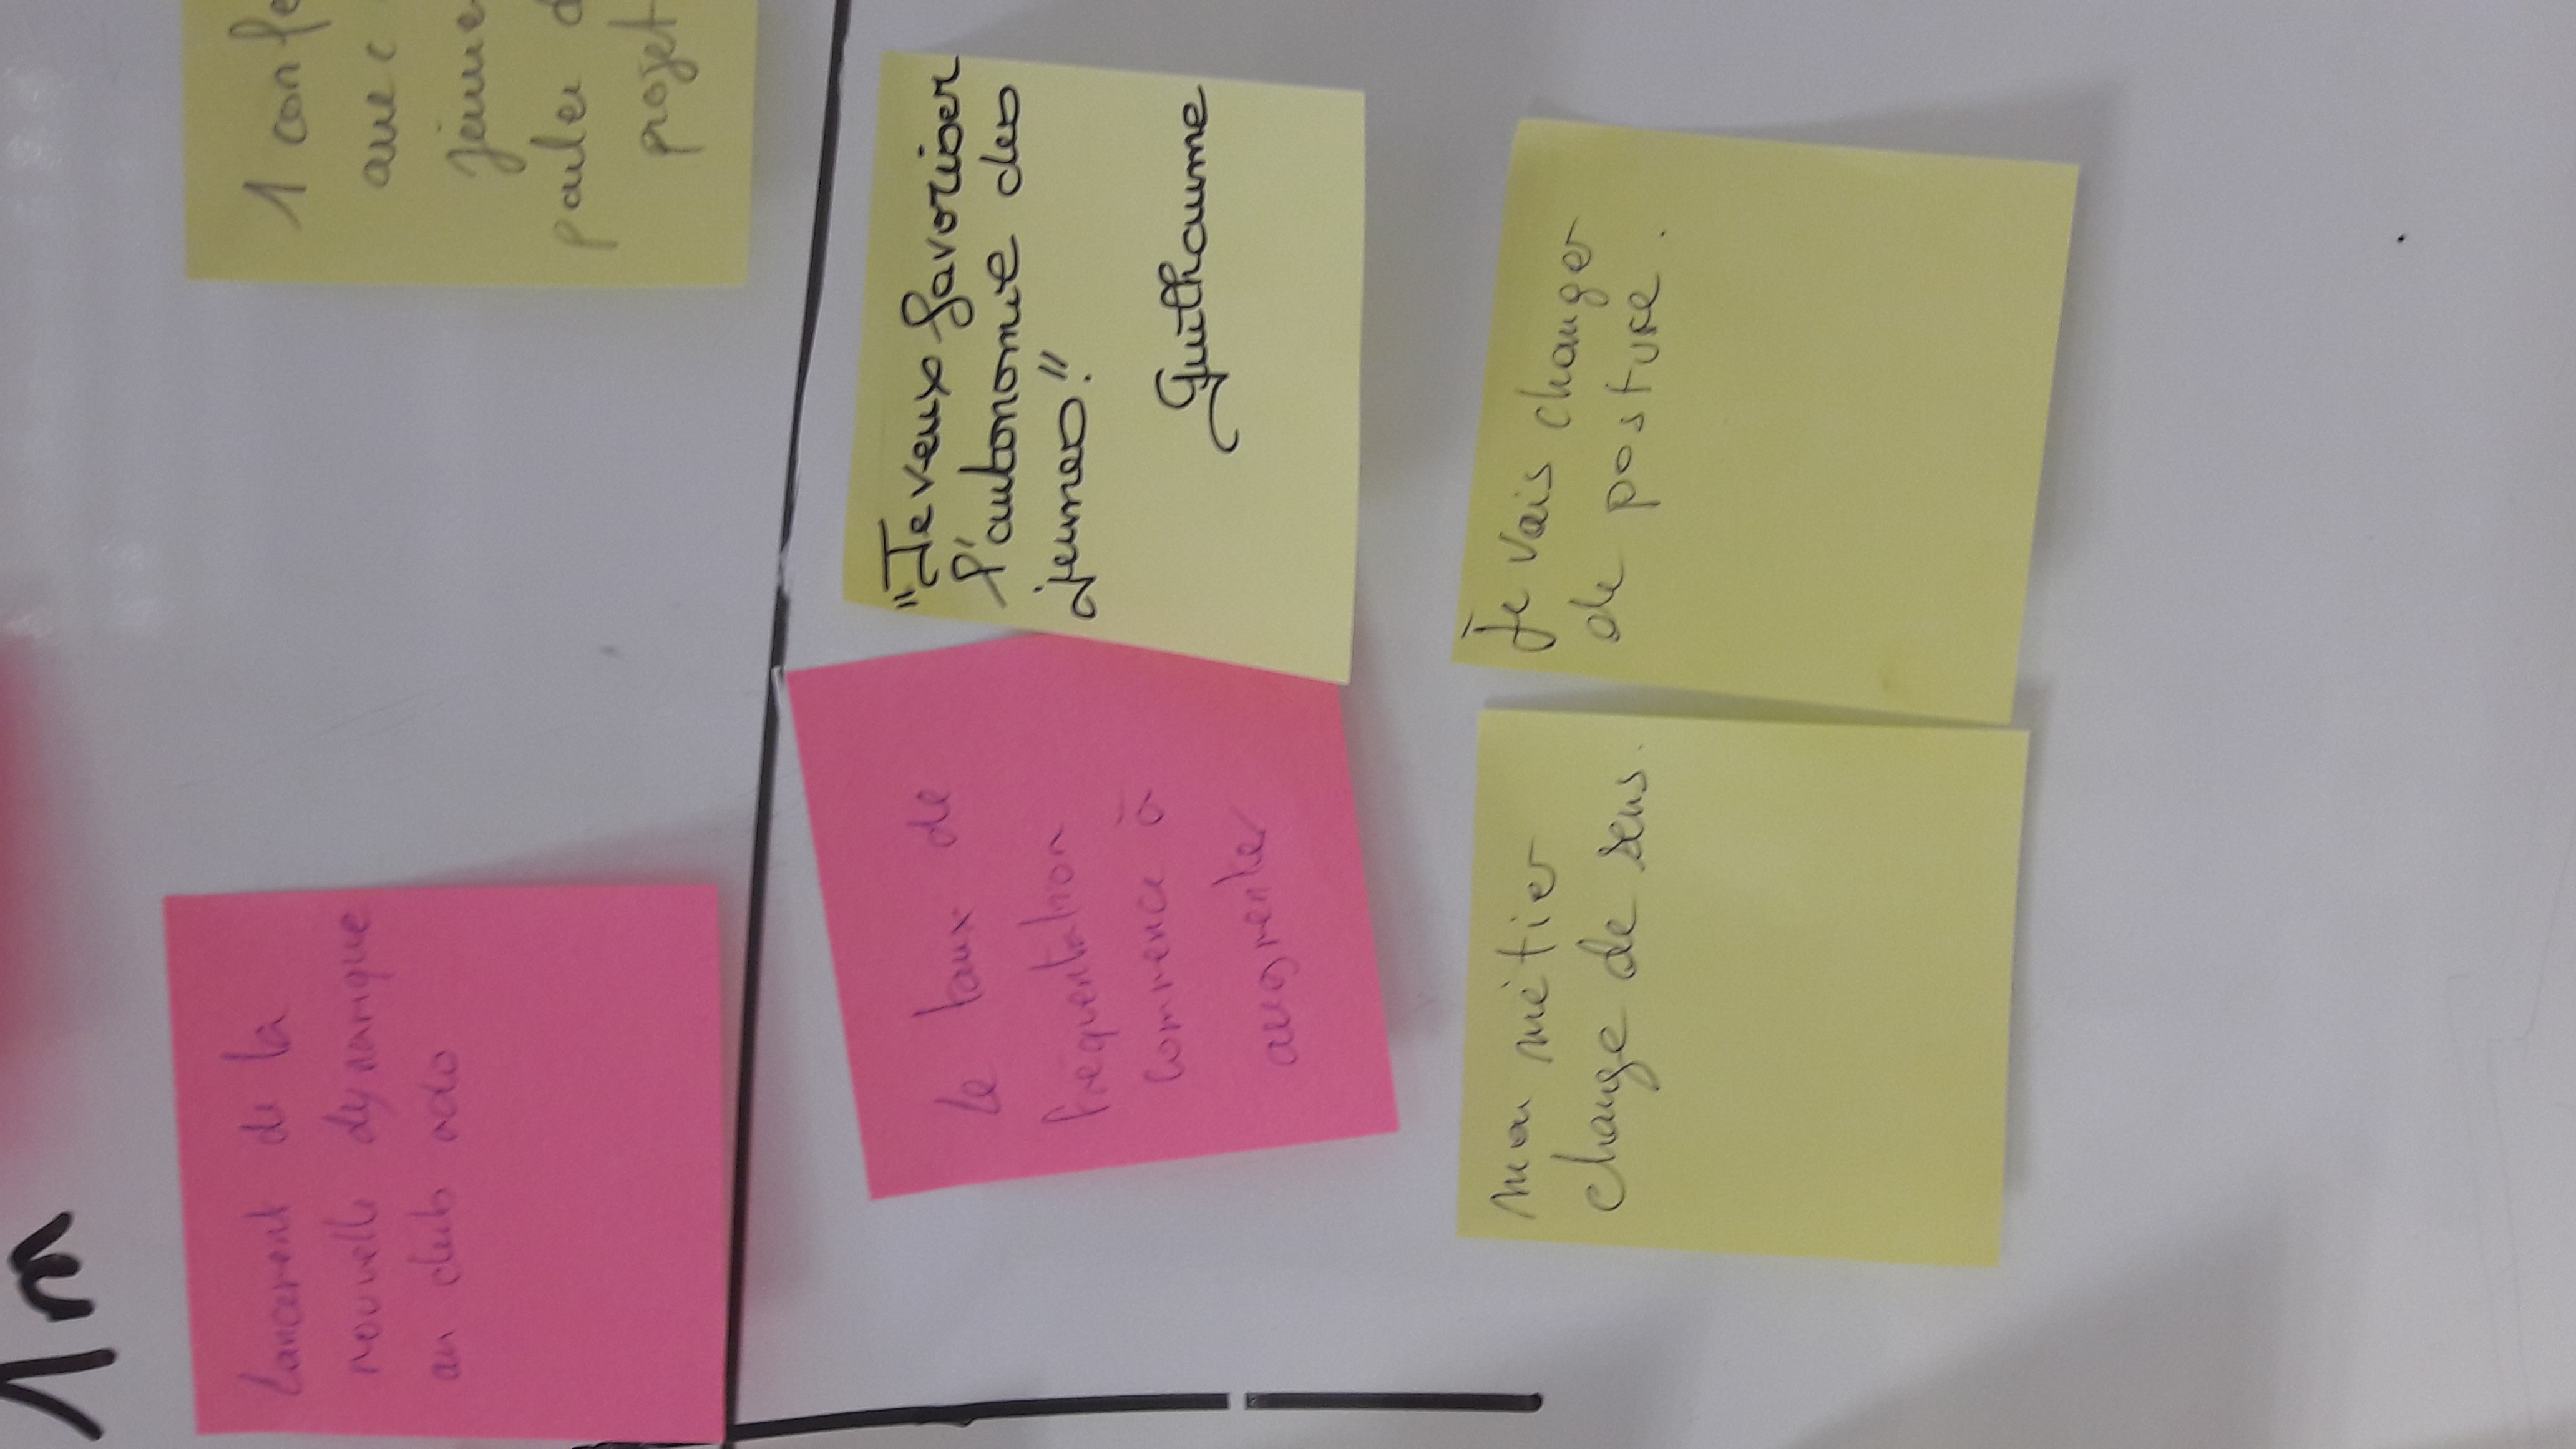 1m
Lancement de la
nouvelle dynamique
au club ado
1 confe
avec
jeune
parler d
projet
Le taux de
frequentation
commence à
augmenter
"Je veux favoriser
l'autonomie des
jeunes!"
Guilhaume
mon métier
change de sens.
Je vais changer
de posture.